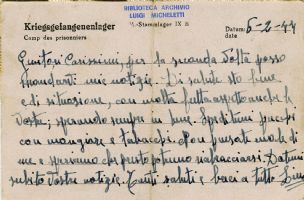 BIBLIOTECA ARCHIVIO
LUIGI MICHELETTI
Kriegsgefangenenlager
Camp des prisonniers
M.-Stammlager IX
Datum:
date
6-2-44
Genitori Carissimi, per la seconda volta posso
mandarvi mie notizie. Di salute sto bene
e di situazione, con molta fretta aspetto anche le
vostre, sperando sempre in bene. Speditemi pacchi
con mangiare e tabacchi. Non pensate male di
me e speriamo che presto potremo riabbracciarci. Datemi
subito vostre notizie. Tanti saluti e baci a tutti